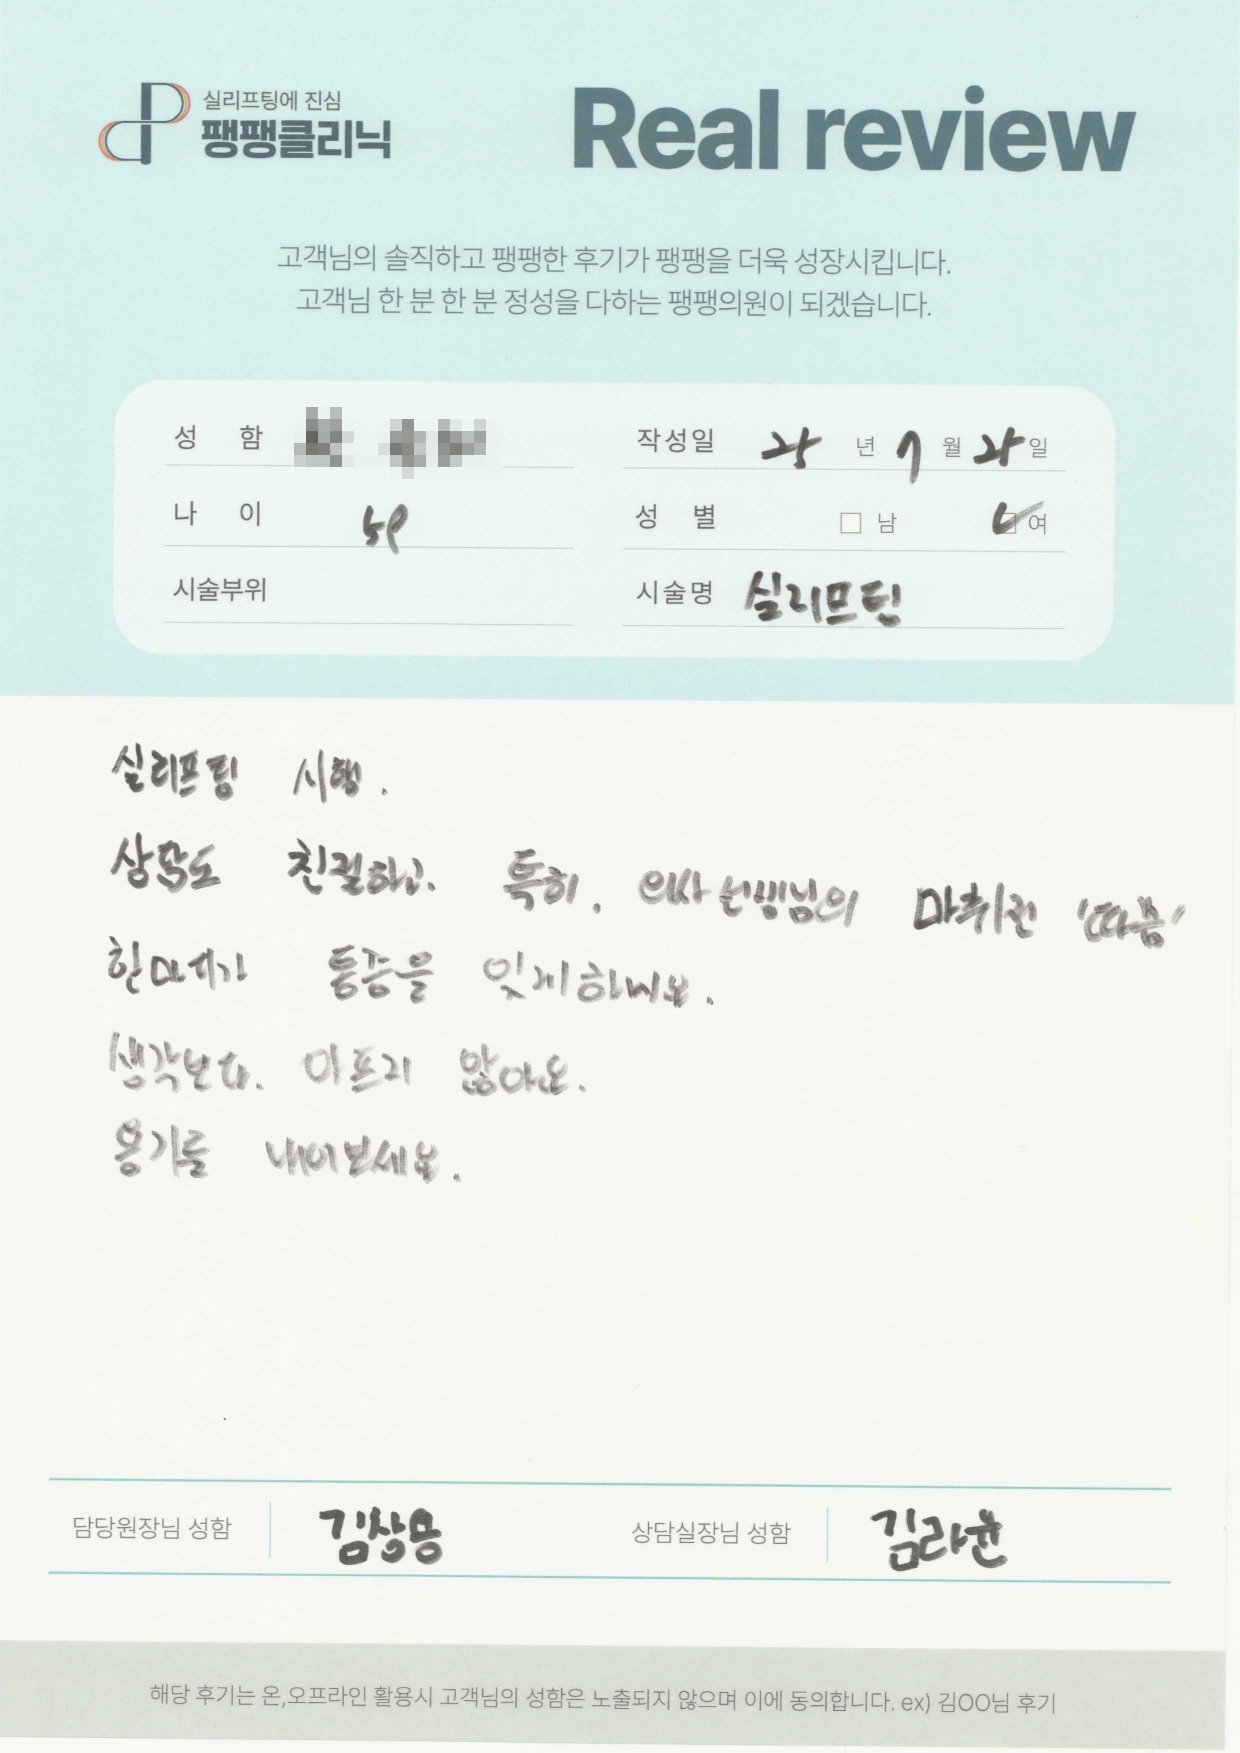 실리프팅에 진심
팽팽클리닉
Real review
고객님의 솔직하고 팽팽한 후기가 팽팽을 더욱 성장시킵니다.
고객님 한 분 한 분 정성을 다하는 팽팽의원이 되겠습니다.
성 함 작성일 25 년 7 월 25 일
나 이 59 성 별 남 여
시술부위 시술명 실리프팅
실리프팅 시행.
상담도 친절하고. 특히, 의사선생님의 마취전 '따끔'
한마디가 통증을 잊게하네요.
생각보다. 아프지 않아요.
용기를 내어보세요.
담당원장님 성함 김창용 상담실장님 성함 김라윤
해당 후기는 온,오프라인 활용시 고객님의 성함은 노출되지 않으며 이에 동의합니다. ex) 김OO님 후기